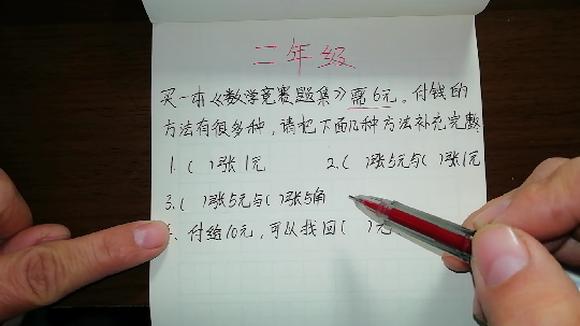 二年级
买一本《数学竞赛题集》需6元。付钱的
方法有很多种,请把下面几种方法补充完整
1.( )张1元 2.( )张5元与( )张1元
3.( )张5元与( )张5角
付给10元,可以找回( )元